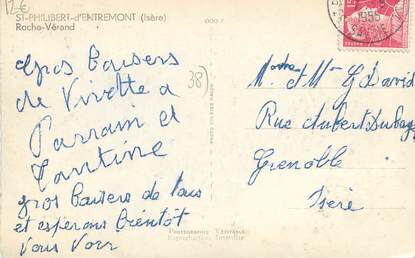 12-€
ST-PHILIBERT-d'ENTREMONT (Isère)
Roche-Vérand
Gros Baisers
de Vivette a
Parrain et
Tantine
gros Baisers de tous
et espérons bientôt
Vous Voir
38)
1955
M Mme G David
Rue Aubert Dubayet
Grenoble
Isère
Photographie Véritable
Reproduction Interdite